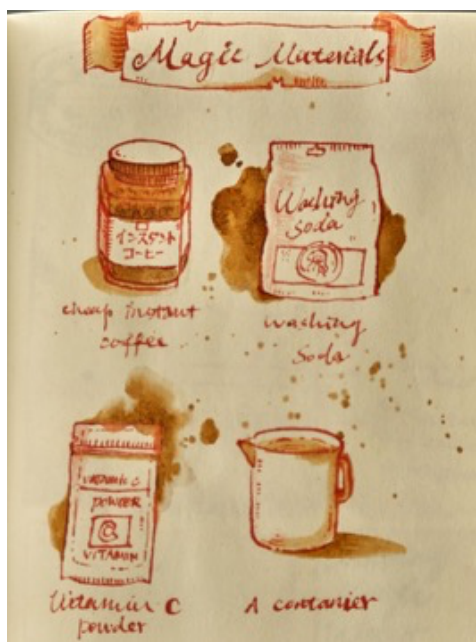 Magic Materials
インスタント
コーヒー
cheap instant
coffee
Washing
Soda
washing
Soda
VITAMIN C
POWDER
C
VITAMIN
Vitamin C
powder
A contanier